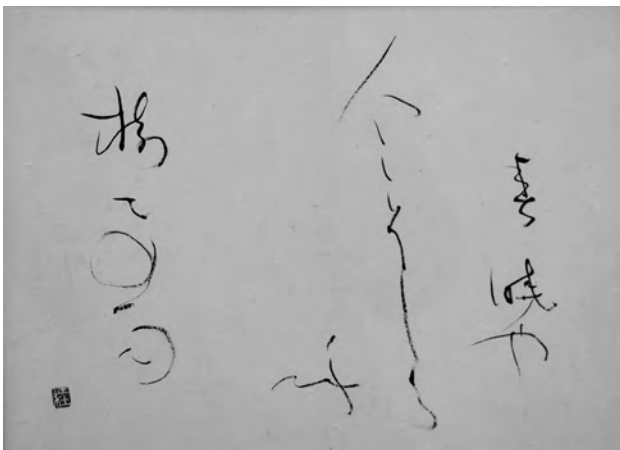 春暁や
人こそしら
ね
樹々の雨